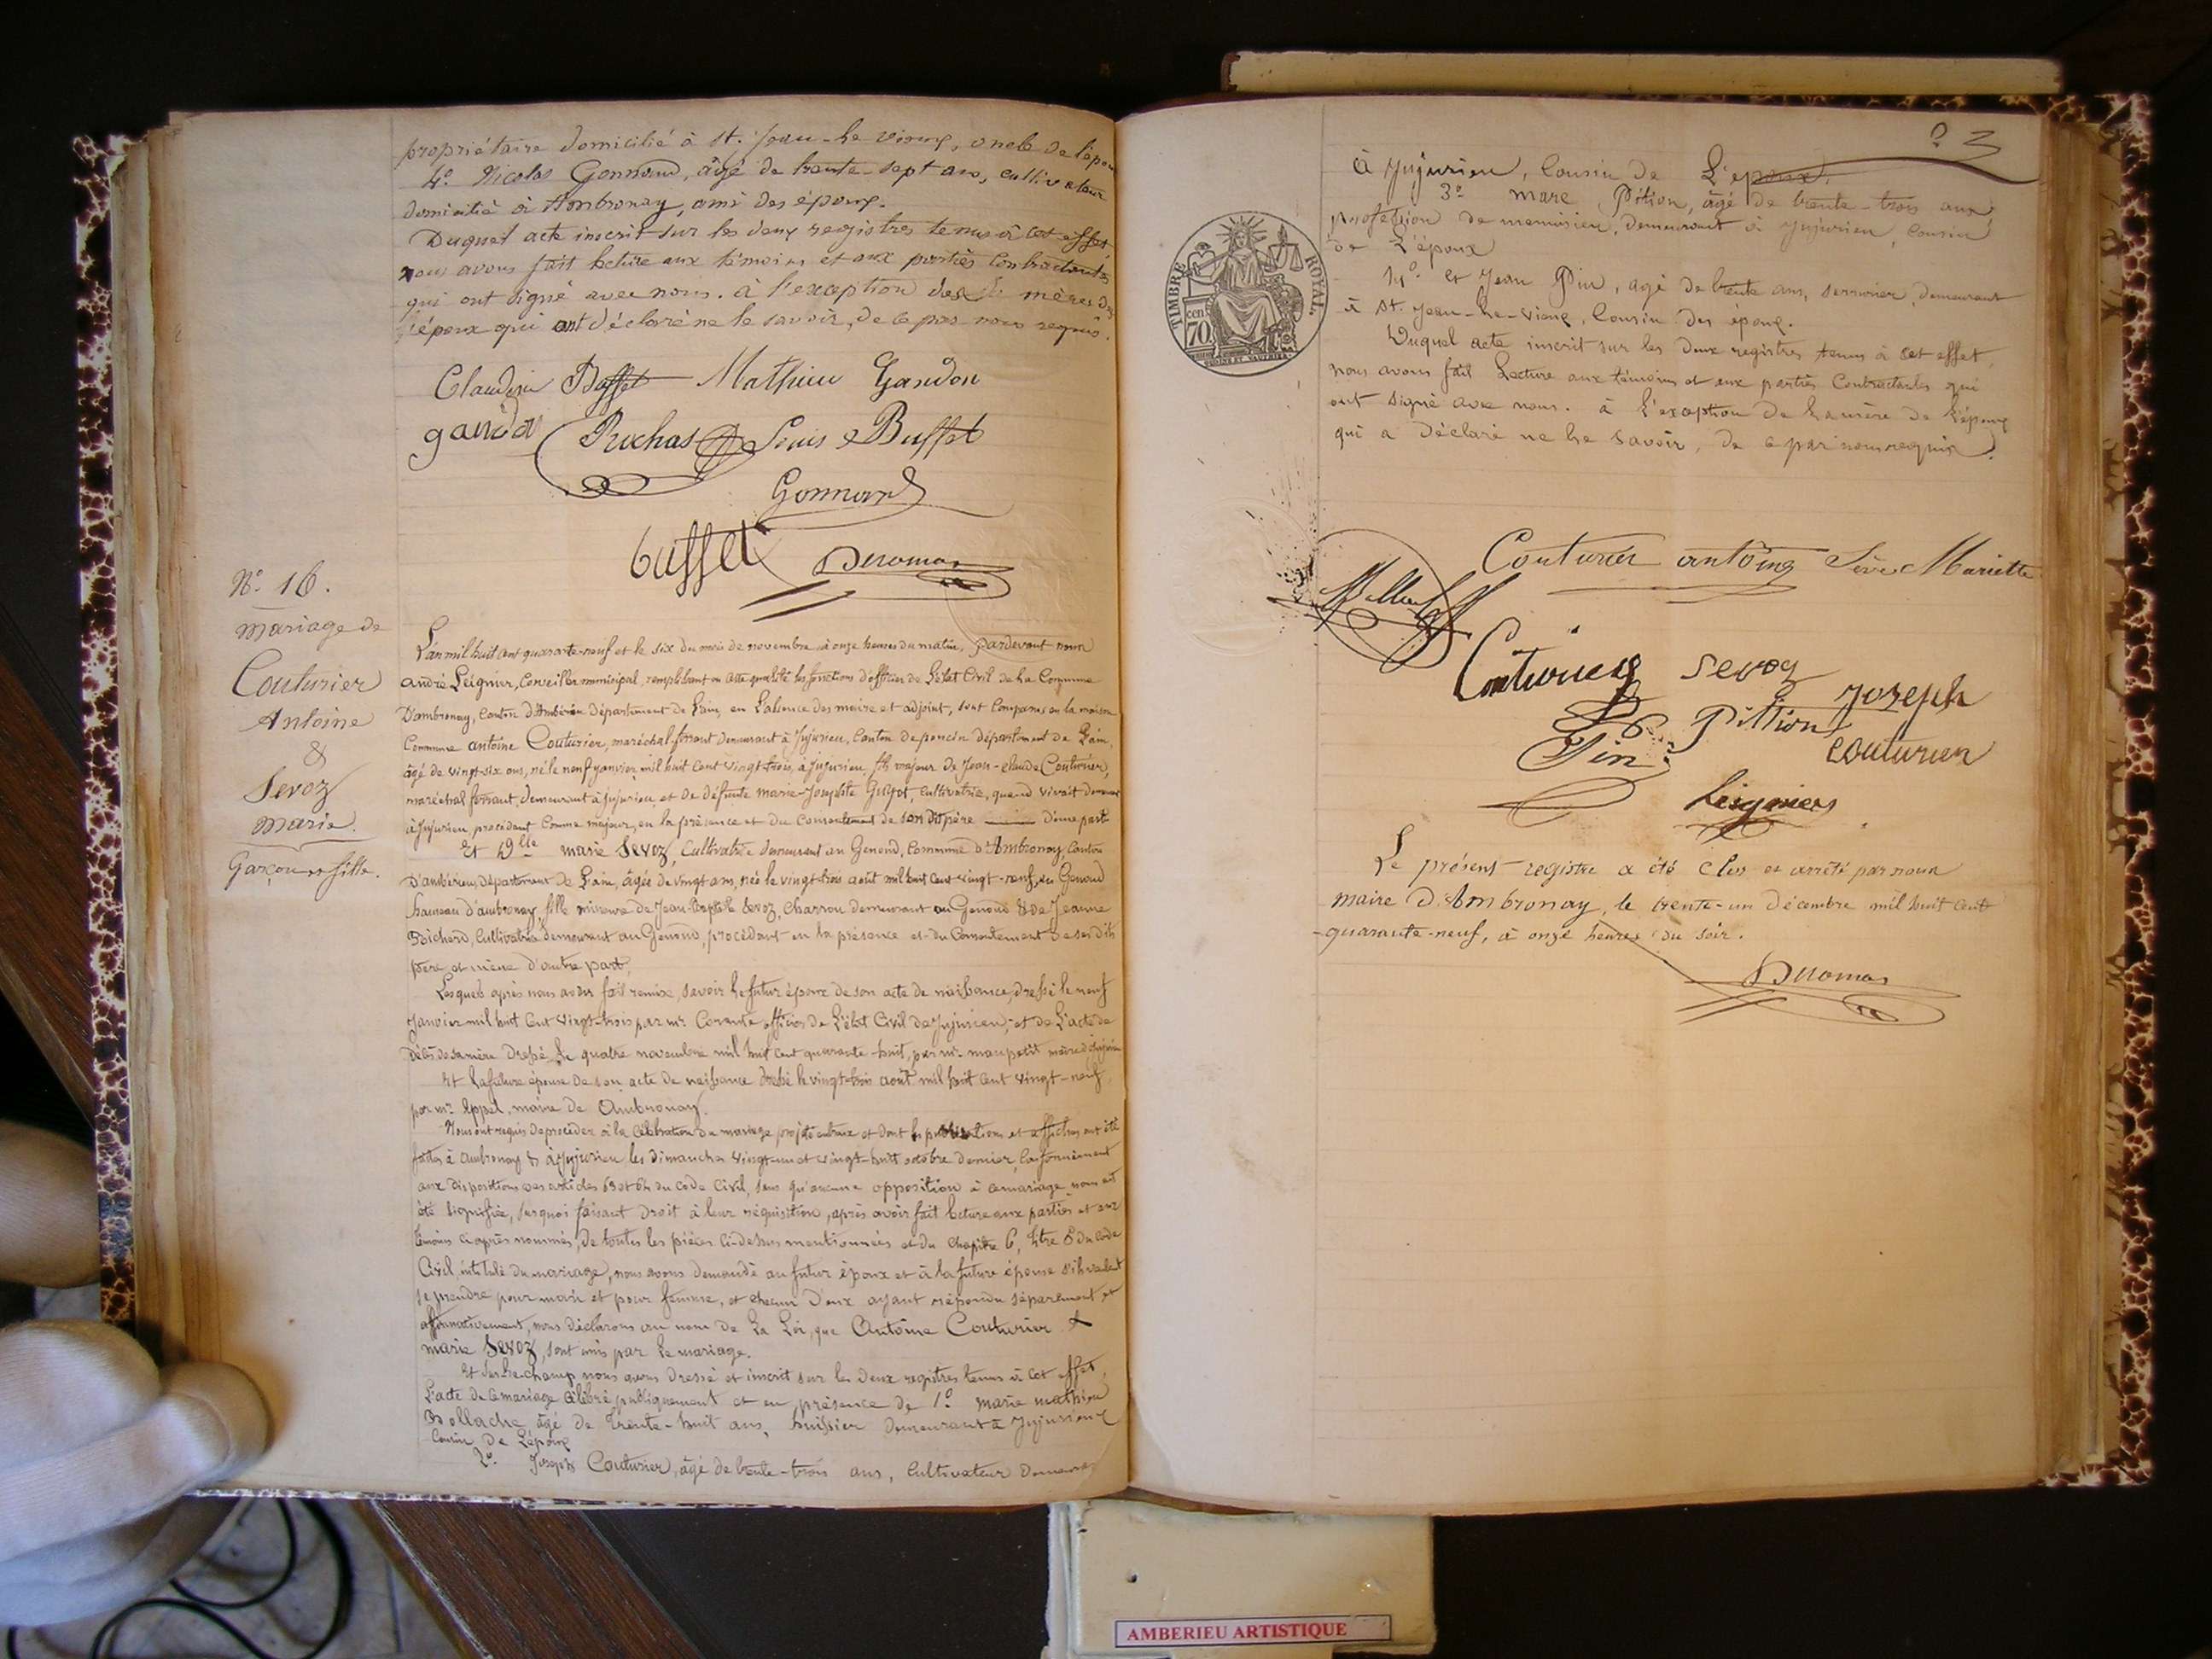 propriétaire domicilié à St. Jean-le vieux, oncle de l'épou
4º. Nicolas Gonnand, âgé de trente-sept ans, cultivateur
domicilié à Ambronay, ami des époux.
Duquel acte inscrit sur les deux registres tenus à cet effet,
nous avons fait lecture aux témoins et aux parties Contractantes
qui ont signé avec nous. à l'exception des mères de
l'époux qui ont déclaré ne le savoir, de ce par nous requis.
Claudine Buffet Mathieu Gandon
Ruchas Louis Buffet
Gonnard
buffet Deroman
Nº. 16.
mariage de
Couturier
Antoine
&
Sevoz
marie.
Garçon et fille.
L'an mil huit cent quarante-neuf et le six du mois de novembre à onze heures du matin, Pardevant nous
andré Leignier, Conseiller municipal, remplissant en cette qualité les fonctions d'officier de L'état Civil de la Commune
D'ambronay, Canton d'Ambérieu Département de L'ain, en L'absence des maire et adjoint, sont Comparus en la maison
Commune antoine Couturier, maréchal ferrant demeurant à Jujurieu, Canton de poncin département de L'ain,
âgé de vingt-six ans, né le neuf janvier mil huit Cent vingt trois, à jujurieu, fils majeur de Jean-claude Couturier,
maréchal ferrant, demeurant à jujurieu, et de défunte marie-Josephte Guyot, Cultivatrice, quand vivait
à Jujurieu, procédant Comme majeur, en la présence et du Consentement de son dit père d'une part
Et Dlle marie Sevoz, Cultivatrice demeurant au Genoud, Commune d'Ambronay, Canton
D'ambérieu, département de L'ain, âgée de vingt ans, née le vingt-trois août mil huit Cent vingt-neuf, au Genoud
hameau d'ambronay, fille mineure de Jean-Baptiste Sevoz, Charron demeurant au Genoud & de Jeanne
Bichard, Cultivatrice demeurant au Genoud, procédant en la présence et du Consentement de ses dits
père et mère d'autre part,
Lesquels après nous avoir fait remise, savoir le futur époux de son acte de naissance, dressé le neuf
Janvier mil huit Cent vingt-trois par mr. officier de L'état Civil de Jujurieu, et de L'acte de
Décès de sa mère dressé Le quatre novembre mil huit cent quarante-huit, par mr. maupetit maire
Et La future épouse de son acte de naissance dressé le vingt-trois août mil huit Cent vingt-neuf,
par mr. Eppel, maire de Ambronay.
Nous ont requis de procéder à la Célébration du mariage projeté entr'eux et dont les publications et affiches ont été
faites à ambronay & à Jujurieu les dimanches vingt-un et vingt-huit octobre dernier, Conformément
aux dispositions des articles 63 et 64 du Code Civil, sans qu'aucune opposition à ce mariage nous ait
été signifiée, sur quoi faisant droit à leur réquisition, après avoir fait lecture aux parties et aux
témoins ci après nommés, De toutes les pièces ci-dessus mentionnées et du Chapitre 6, titre 5 du Code
Civil, intitulé du mariage, nous avons demandé au futur époux et à la future épouse s'ils veulent
se prendre pour mari et pour femme, et chacun d'eux ayant répondu séparément et
affirmativement, nous déclarons au nom de La Loi, que Antoine Couturier &
marie Sevoz, sont unis par Le mariage.
Et sur le champ nous avons dressé et inscrit sur les deux registres tenus à cet effet,
L'acte de ce mariage célébré publiquement et en présence de 1º. marie mathieu
Bollache, âgé de trente-huit ans, huissier demeurant à Jujurieux
Cousin de L'époux
2º. Joseph Couturier, âgé de trente-trois ans, Cultivateur
à Jujurieu, Cousin de L'époux.
3º marc Pétion, âgé de trente-trois ans
profession de menuisier, demeurant à jujurieu, Cousin
de L'époux
4º. et Jean Pin, agé de trente ans, serrurier, demeurant
à St. Jean-Le-vieux, Cousin des époux.
Duquel acte inscrit sur les deux registres tenus à cet effet,
nous avons fait Lecture aux témoins et aux parties Contractantes qui
ont signé avec nous. à L'exception de La mère de L'époux
qui a déclaré ne Le savoir, de ce par nous requis.
TIMBRE ROYAL
70 cent
Couturier antoine Mariette
Couturier Sevoz
Joseph
Pittion
Pin
Couturier
Leigniers
Le présent registre a été Clos et arrêté par nous
maire D'Ambronay, le trente-un décembre mil huit Cent
-quarante-neuf, à onze heures du soir.
Deroman
AMBERIEU ARTISTIQUE